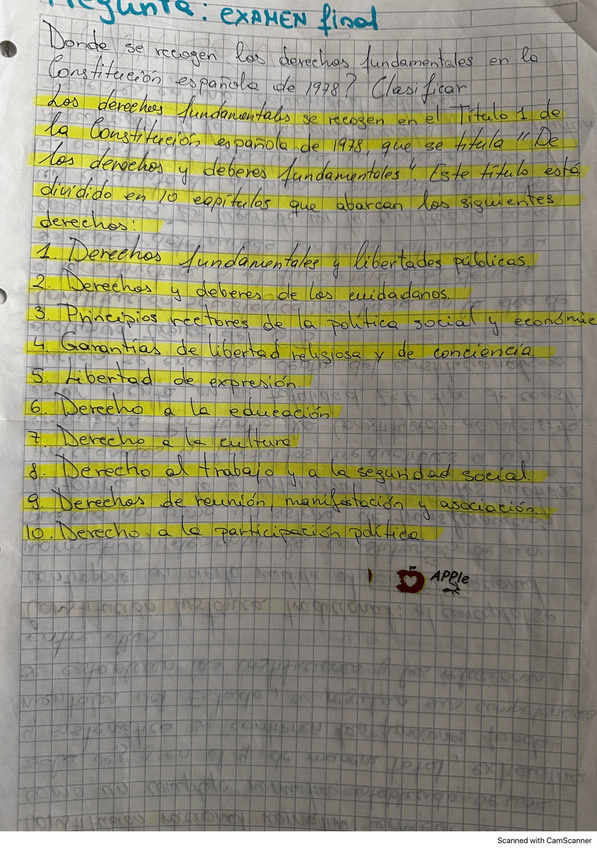 Pregunta: EXAMEN final
Donde se recogen los derechos fundamentales en la
Constitución española de 1978? Clasificar
Los derechos fundamentals se recogen en el Titulo 1 de
la Constitución española de 1978 que se titula "De
los derechos y deberes fundamentales". Este titulo está
dividido en 10 capitulos que abarcan los siguientes
derechos:
1. Derechos fundamentales y libertades públicas.
2. Derechos y deberes de los cuidadanos.
3. Principios rectores de la política social y económie
4. Garantías de libertad religiosa y de conciencia.
5. Libertad de expresión.
6. Derecho a la educación.
7. Derecho a la cultura
8. Derecho al trabajo y a la seguridad social.
9. Derechos de reunión, manifestación y asociación.
10. Derecho a la participación política.
APPle
Scanned with CamScanner